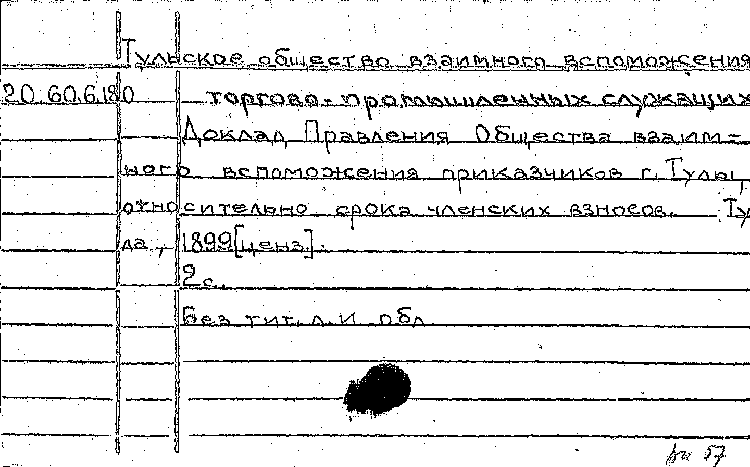 Тульское общество взаимного вспоможения
20.60.6.180 торгово-промышленных служащих
Доклад Правления Общества взаим-
ного вспоможения приказчиков г. Тулы,
относительно срока членских взносов. Ту
ла, 1899 [ценз].
2 с.
Без тит. л. и обл